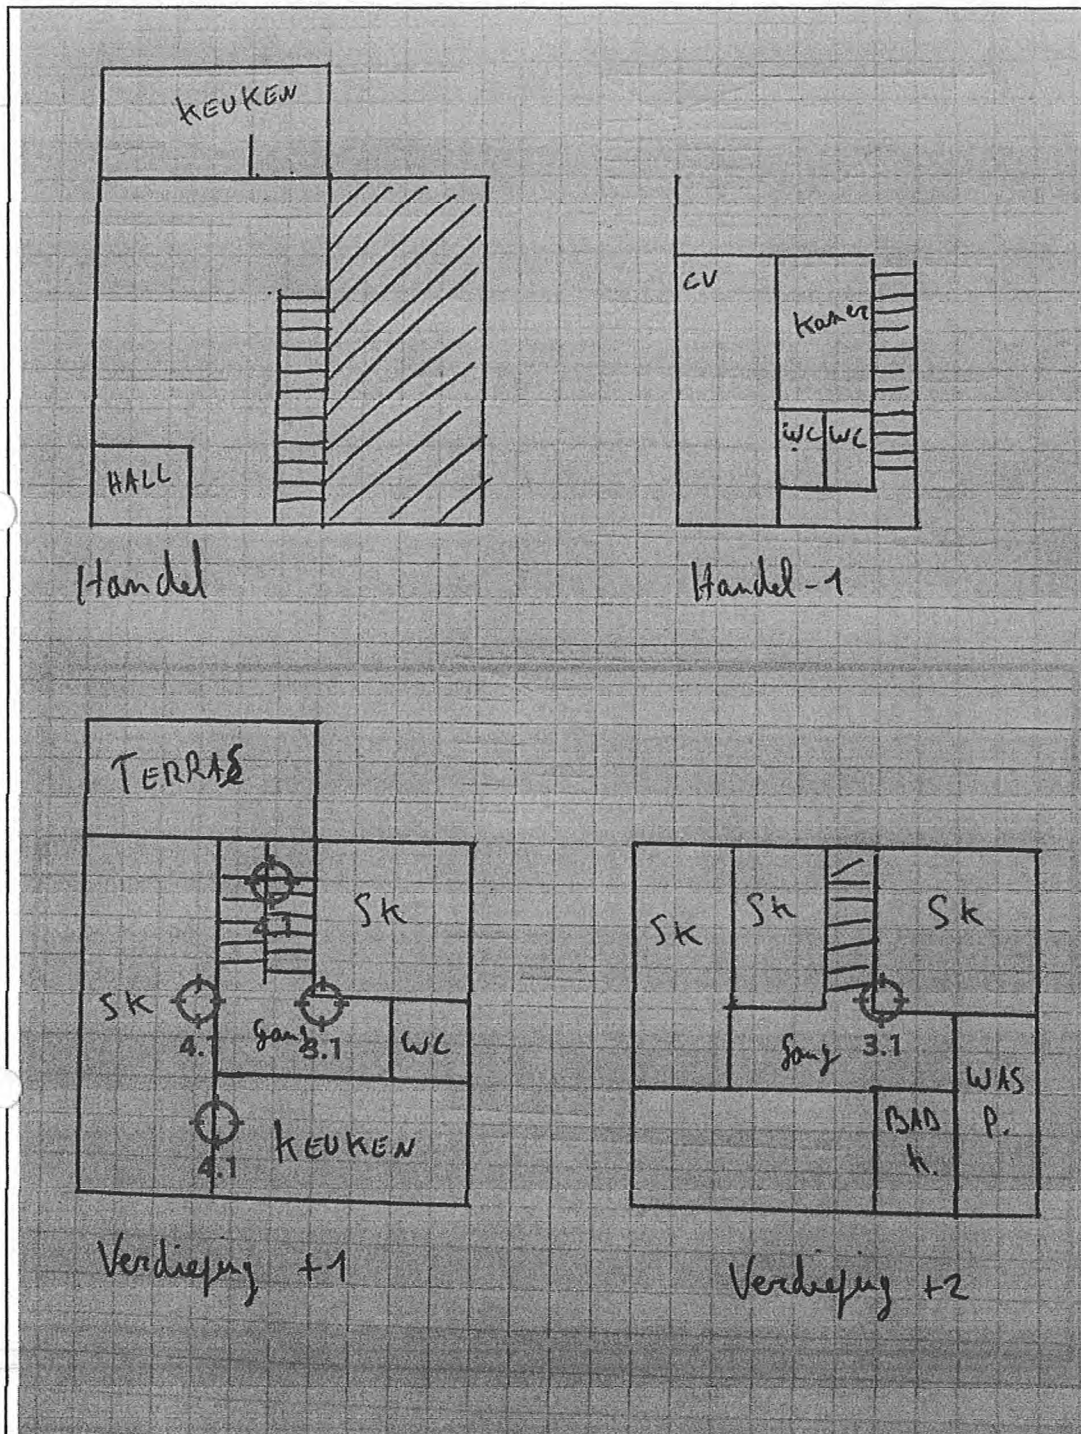 KEUKEN
HALL
Handel
CV
Kamer
WC WC
Handel-1
TERRAS
SK
4.1
SK
4.1
Gang
3.1
WC
4.1
KEUKEN
Verdieping +1
SK
SK
SK
Gang
3.1
WAS
P.
BAD
K.
Verdieping +2